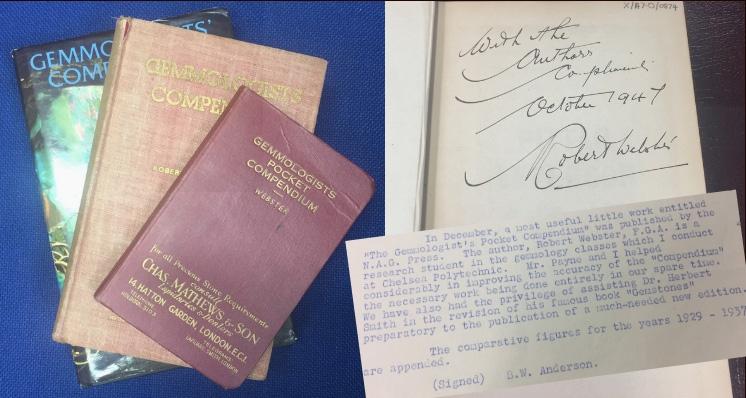 GEMMOLOGISTS'
GEMMOLOGISTS
COMPENDIUM
ROBERT
GEMMOLOGIST'S
POCKET
COMPENDIUM
WEBSTER
for all Precious Stone Requirements
consult
CHAS. MATHEWS & SON
Lapidaries & Dealers
14, HATTON GARDEN, LONDON, E.C.1.
TELEPHONE
TELEGRAMS
With the
Authors
Compliments
October 1947
Robert Webster
In December, a most useful little work entitled
"The Gemmologist's Pocket Compendium" was published by the
N.A.G. Press. The author, Robert Webster, F.G.A. is a
research student in the gemmology classes which I conduct
at Chelsea Polytechnic. Mr. Payne and I helped
considerably in improving the accuracy of the "Compendium"
the necessary work being done entirely in our spare time.
We have also had the privilege of assisting Dr. Herbert
Smith in the revision of his famous book "Gemstones"
preparatory to the publication of a much-needed new edition.
The comparative figures for the years 1929 - 1937
are appended.
(Signed) B.W. Anderson.